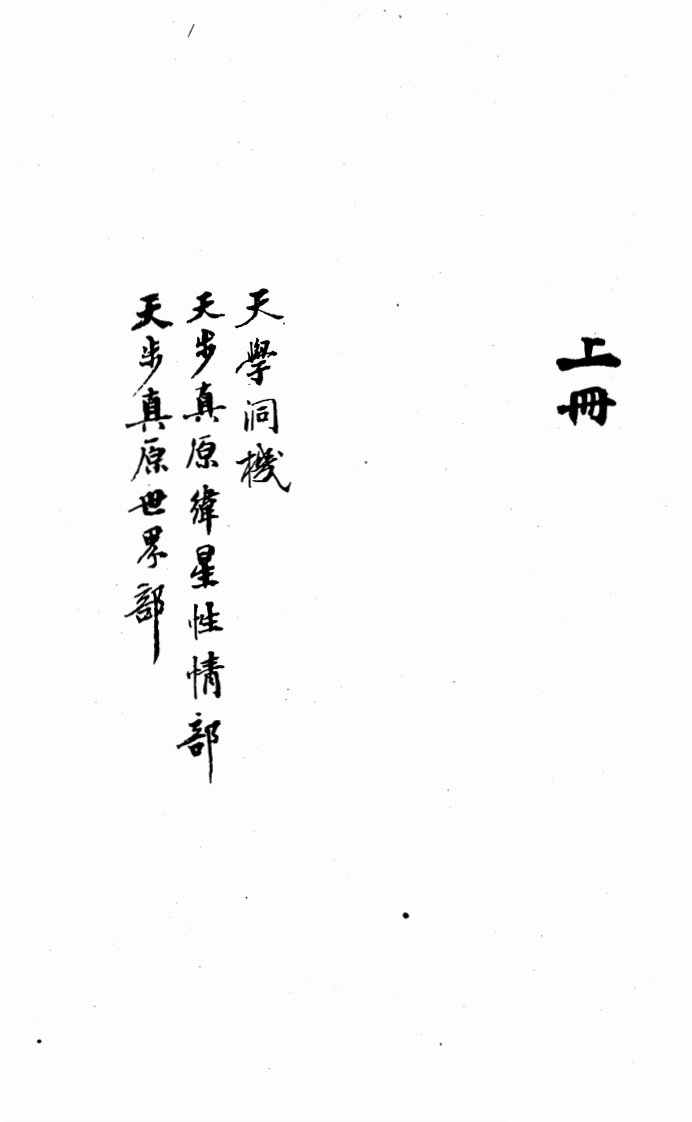 上冊
天學洞機
天步真原緯星性情部
天步真原世界部